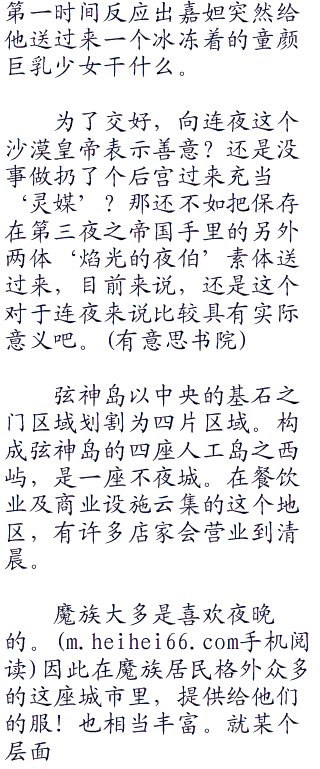 第一时间反应出嘉妲突然给
他送过来一个冰冻着的童颜
巨乳少女干什么。
为了交好，向连夜这个
沙漠皇帝表示善意？还是没
事做扔了个后宫过来充当
‘灵媒’？那还不如把保存
在第三夜之帝国手里的另外
两体‘焰光的夜伯’素体送
过来，目前来说，还是这个
对于连夜来说比较具有实际
意义吧。(有意思书院)
弦神岛以中央的基石之
门区域划割为四片区域。构
成弦神岛的四座人工岛之西
屿，是一座不夜城。在餐饮
业及商业设施云集的这个地
区，有许多店家会营业到清
晨。
魔族大多是喜欢夜晚
的。(m.heihei66.com手机阅
读)因此在魔族居民格外众多
的这座城市里，提供给他们
的服！也相当丰富。就某个
层面